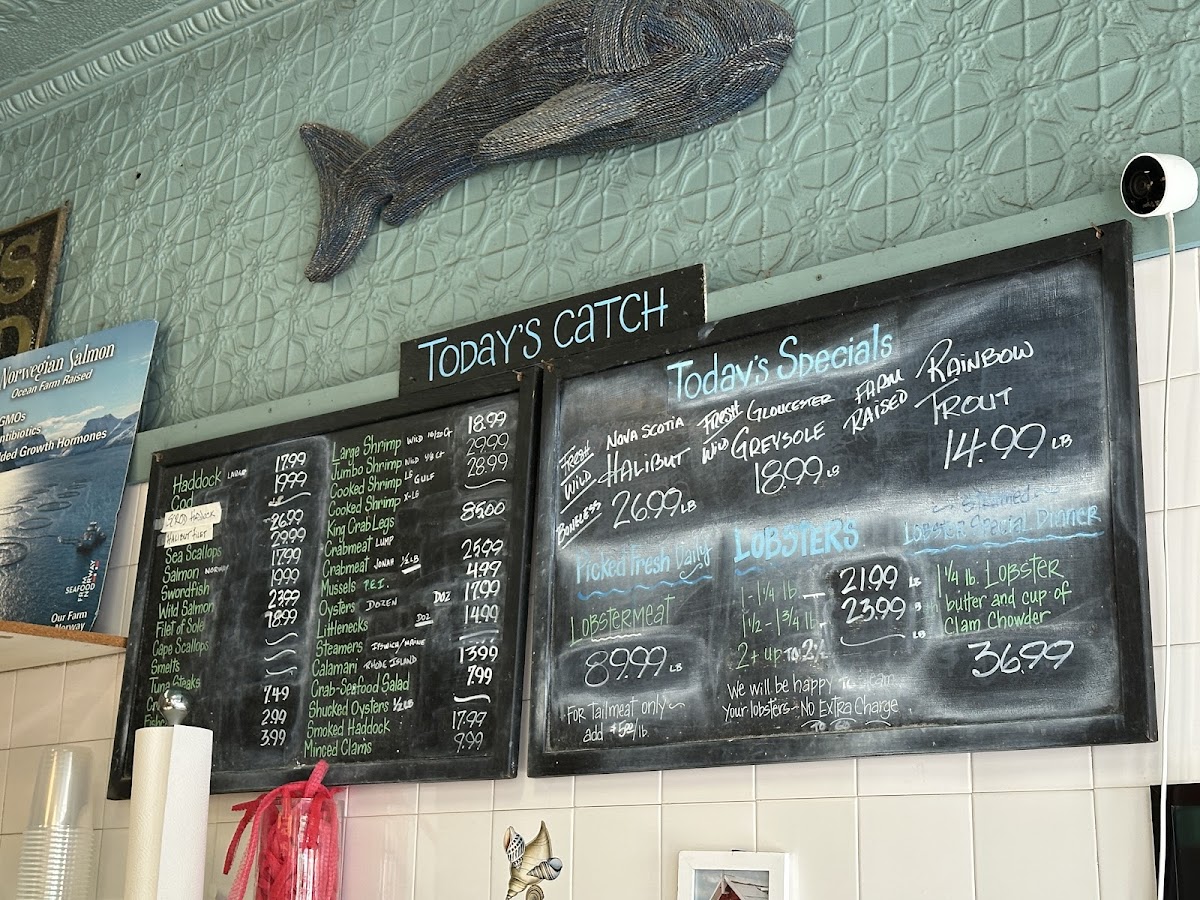 S
Norwegian Salmon
Ocean Farm Raised
GMOs
ntibiotics
ded Growth Hormones
SEAFOOD
FROM
NORWAY
Our Farm
Norway
TODAY'S CATCH
Haddock
17.99
Cod
19.99
SCROD HADDOCK
HALIBUT FILET
26.99
Sea Scallops
29.99
Salmon NORWAY
17.99
Swordfish
19.99
Wild Salmon
23.99
Filet of Sole
18.99
Cape Scallops
Smelts
Tuna Steaks
7.49
2.99
3.99
Large Shrimp WILD 10/20 CT
18.99
Jumbo Shrimp WILD 4/8 CT
29.99
Cooked Shrimp LG GULF
28.99
Cooked Shrimp X-LG
King Crab Legs
85.00
Crabmeat LUMP
Crabmeat JONAH 1/2 LB
25.99
Mussels P.E.I.
4.99
Oysters DOZEN DOZ
17.99
Littlenecks DOZ
14.99
Steamers IPSWICH/MAINE
Calamari RHODE ISLAND
13.99
Crab-Seafood Salad
7.99
Shucked Oysters 1/2 LB
Smoked Haddock
17.99
Minced Clams
9.99
Today's Specials
FRESH NOVA SCOTIA
WILD HALIBUT
BONELESS 26.99 LB
FRESH GLOUCESTER
WILD GREYSOLE
18.99 LB
FARM RAISED
RAINBOW
TROUT
14.99 LB
Picked Fresh Daily
LOBSTERMEAT
89.99 LB
FOR Tailmeat only~
add $5.00/lb.
LOBSTERS
1-1 1/4 lb. 21.99 LB
1 1/2-1 3/4 lb 23.99 LB
2+ up TO 2 1/2 LB
We will be happy To steam
Your lobsters~ No Extra Charge
Steamed
LOBSTER Special Dinner
1 1/4 lb. LOBSTER
butter and cup of
Clam Chowder
36.99